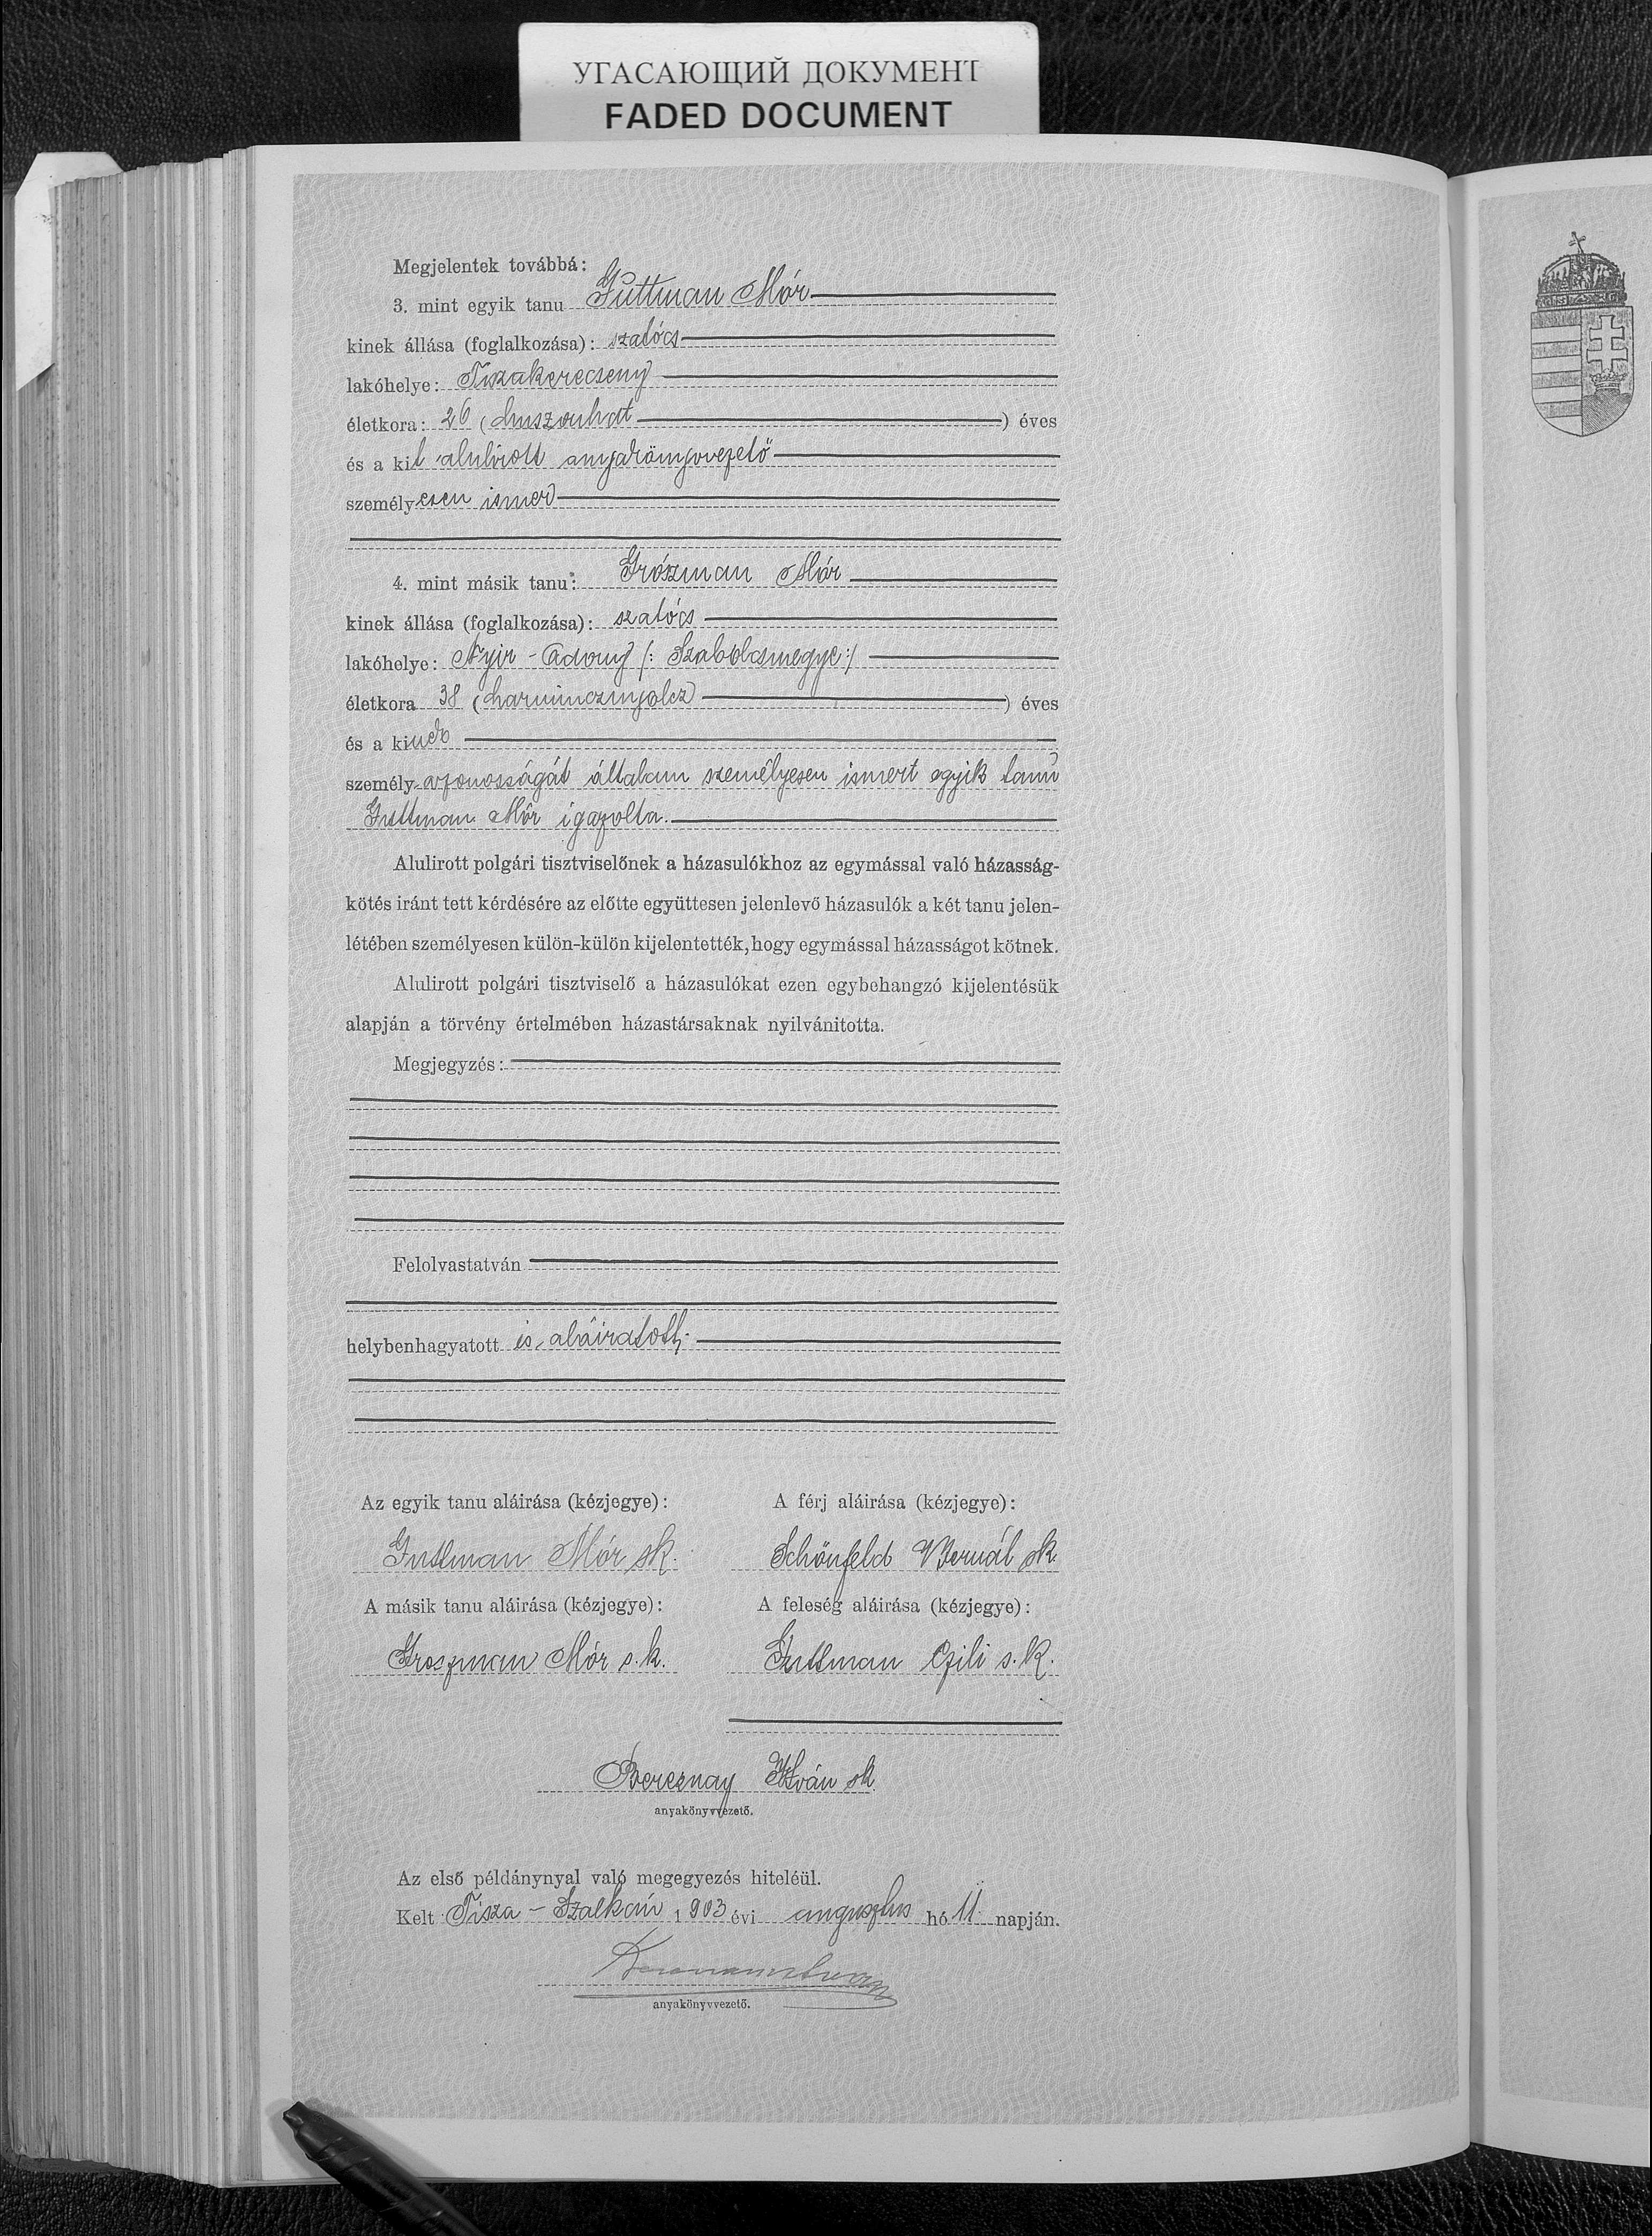 УГАСАЮЩИЙ ДОКУМЕНТ
FADED DOCUMENT
Megjelentek továbbá:
3. mint egyik tanu Guttman Mór
kinek állása (foglalkozása): szatócs
lakóhelye: Tiszakerecseny
életkora: 26 (huszonhat) éves
és a kit alulirott anyakönyvvezető
személyesen ismer
4. mint másik tanu: Grószman Mór
kinek állása (foglalkozása): szatócs
lakóhelye: Nyir-Adony /: Szabolcsmegye :/
életkora 38 (harmincznyolcz) éves
és a kinek
személyazonosságát általam személyesen ismert egyik tanu
Guttman Mór igazolta.
Alulirott polgári tisztviselőnek a házasulókhoz az egymással való házasság-
kötés iránt tett kérdésére az előtte együttesen jelenlevő házasulók a két tanu jelen-
létében személyesen külön-külön kijelentették, hogy egymással házasságot kötnek.
Alulirott polgári tisztviselő a házasulókat ezen egybehangzó kijelentésük
alapján a törvény értelmében házastársaknak nyilvánitotta.
Megjegyzés:
Felolvastatván
helybenhagyatott és aláiratott.
Az egyik tanu aláirása (kézjegye): A férj aláirása (kézjegye):
Guttman Mór sk. Schönfeld Bernát sk.
A másik tanu aláirása (kézjegye): A feleség aláirása (kézjegye):
Groszman Mór s.k. Guttman Czili s.k.
Bereznay István sk.
anyakönyvvezető.
Az első példánynyal való megegyezés hiteléül.
Kelt Tisza-Szalkán 1903 évi augusztus hó 11 napján.
anyakönyvvezető.